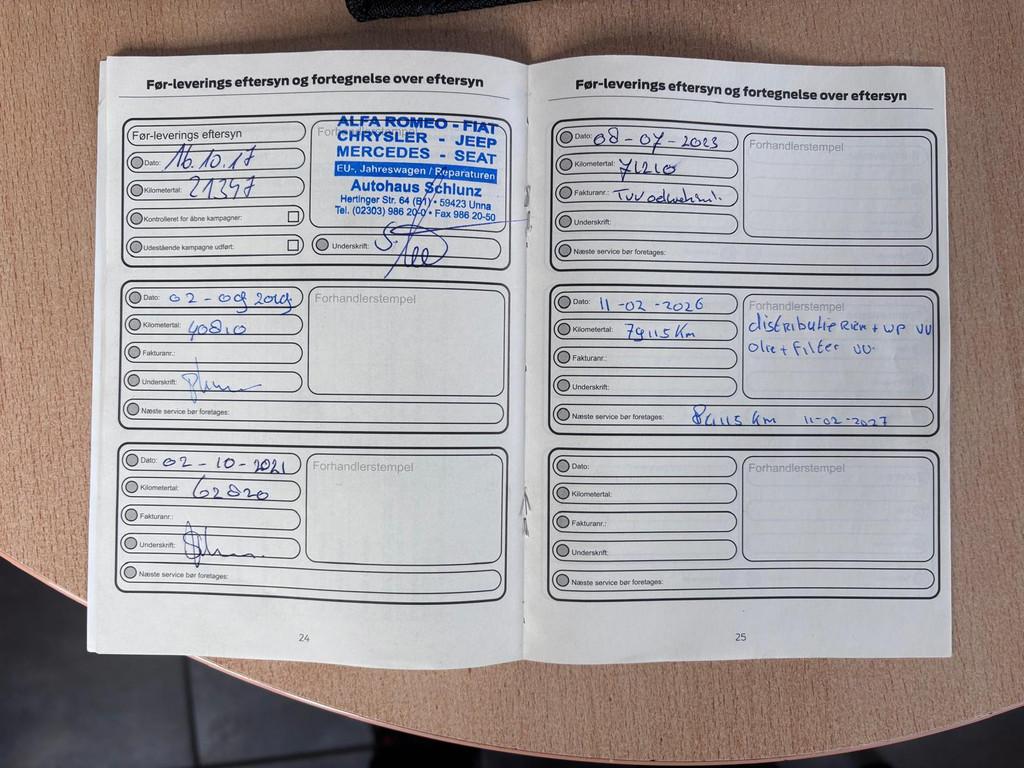 Før-leverings eftersyn og fortegnelse over eftersyn
Før-leverings eftersyn
Dato: 16.10.17
Kilometertal: 21347
Kontrolleret for åbne kampagner:
Udestående kampagne udført:
Forhandlerstempel
ALFA ROMEO - FIAT
CHRYSLER - JEEP
MERCEDES - SEAT
EU-, Jahreswagen / Reparaturen
Autohaus Schlunz
Hertinger Str. 64 (B1) • 59423 Unna
Tel. (02303) 986 20-0 • Fax 986 20-50
Underskrift:
Dato: 02-09 2019
Kilometertal: 40810
Fakturanr.:
Underskrift:
Næste service bør foretages:
Forhandlerstempel
Dato: 02-10-2021
Kilometertal: 62820
Fakturanr.:
Underskrift:
Næste service bør foretages:
Forhandlerstempel
24
Før-leverings eftersyn og fortegnelse over eftersyn
Dato: 08-07-2023
Kilometertal: 71210
Fakturanr.:
Underskrift:
Næste service bør foretages:
Forhandlerstempel
Dato: 11-02-2026
Kilometertal: 79115 Km
Fakturanr.:
Underskrift:
Næste service bør foretages: 84115 Km 11-02-2027
Forhandlerstempel
distributie Riem + WP VV
Olie + Filter VV.
Dato:
Kilometertal:
Fakturanr.:
Underskrift:
Næste service bør foretages:
Forhandlerstempel
25